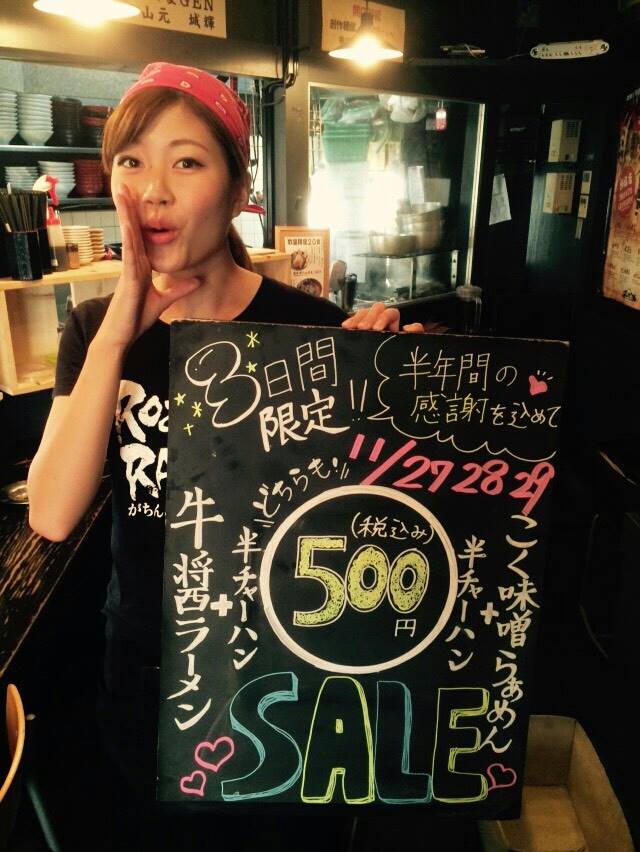 &GEN
山元 城輝
数量限定20食
3日間
限定!!
半年間の
感謝を込めて
11/27 28 29
どちらも!!
(税込み)
500
円
牛醤ラーメン
+
半チャーハン
こく味噌らぁめん
+
半チャーハン
SALE
がちん